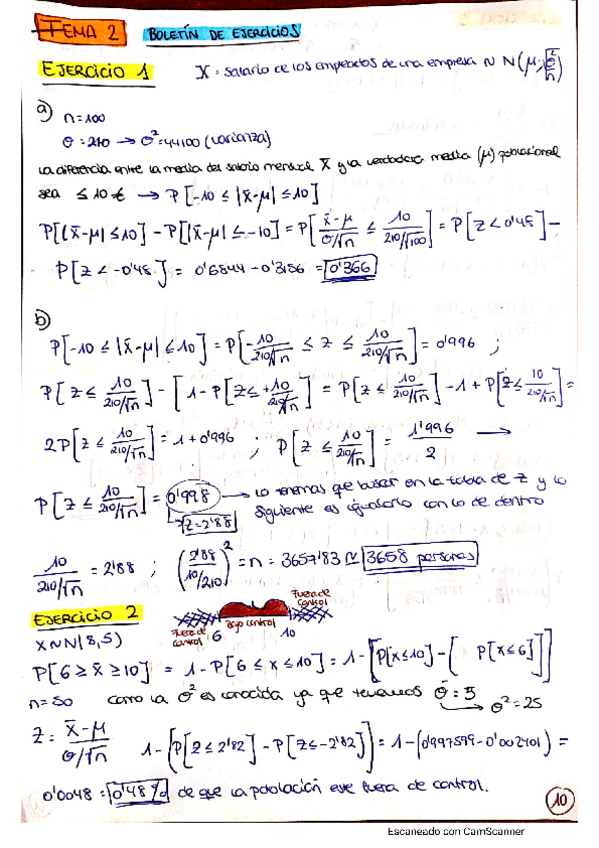 TEMA 2 BOLETÍN DE EJERCICIOS
EJERCICIO 1 X = salario de los empleados de una empresa ~ N(μ;
a)
n=100
σ = 210 → σ²=44100 (varianza)
La diferencia entre la media del salario mensual x̄ y la verdadera media (μ) poblacional
sea ≤ 10 € → P[-10 ≤ |x̄-μ| ≤ 10]
P[(x̄-μ| ≤ 10] - P[|x̄-μ| ≤ -10] = P[x̄-μ / σ/√n ≤ 10 / 210/√100] = P[Z < 0'48] -
P[Z < -0'48] = 0'6844 - 0'3156 = 0'366
b)
P[-10 ≤ |x̄-μ| ≤ 10] = P[-10 / 210/√n ≤ Z ≤ 10 / 210/√n] = 0'996 ;
P[Z ≤ 10 / 210/√n] - [1 - P[Z ≤ +10 / 210/√n] = P[Z ≤ 10 / 210/√n] - 1 + P[Z ≤ 10 / 210/√n] =
2P[Z ≤ 10 / 210/√n] = 1 + 0'996 ; P[Z ≤ 10 / 210/√n] = 1'996 / 2 →
P[Z ≤ 10 / 210/√n] = 0'998 → Lo tenemos que buscar en la tabla de Z y lo
Z = 2'88 siguiente es igualarlo con lo de dentro
10 / 210/√n = 2'88 ; (2'88 / 10/210)² = n = 3657'83 ≅ 3658 personas
EJERCICIO 2
Fuera de control 6 Bajo control 10 Fuera de control
X ~ N(8,5)
P[6 ≥ x̄ ≥ 10] = 1 - P[6 ≤ x ≤ 10] = 1 - [P[x ≤ 10] - ( P[x ≤ 6]]]
n = 50 como la σ² es conocida ya que tenemos σ = 5 → σ² = 25
Z = x̄-μ / σ/√n 1 - (P[Z ≤ 2'82] - P[Z ≤ -2'82]) = 1 - (0'997599 - 0'002401) =
0'0048 = 0'48% de que la población este fuera de control.
10
Escaneado con CamScanner